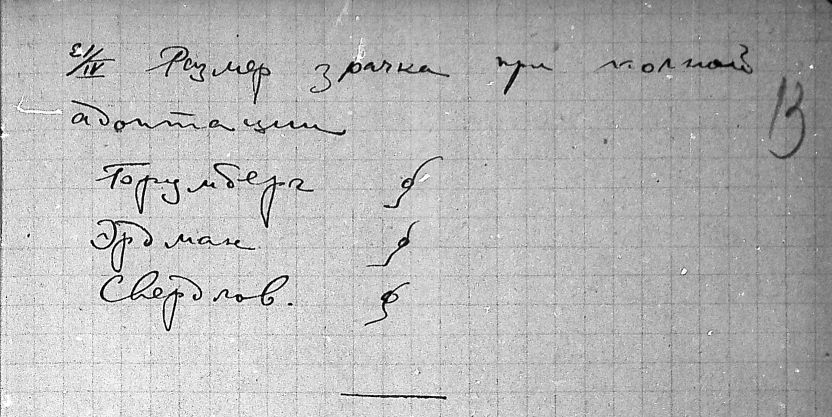 21/IV Размер зрачка при полной
13
адоптации
Горумберг 8
Эрдман 8
Свердлов. 8